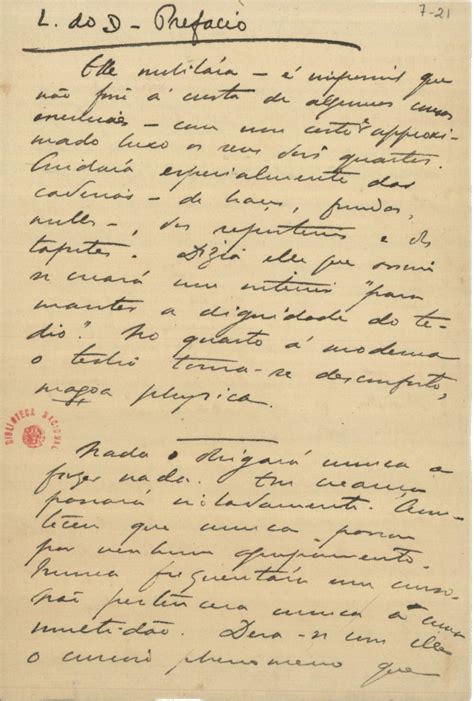 7-21
L. do D - Prefacio
Elle mobilára – é impossivel que
não fosse á custa de algumas cousas
essenciaes – com um certo e approxi-
mado luxo os seus dois quartos.
Cuidára especialmente das
cadeiras – de braços, fundas,
molles –, dos reposteiros e dos
tapetes. Dizia elle que assim
se creára um interior "para
manter a dignidade do te-
dio". No quarto á moderna
o tedio torna-se desconforto,
magoa physica.
BIBLIOTECA NACIONAL
Nada o obrigára nunca a
fazer nada. Em creança
passára isoladamente. Acon-
teceu que nunca passou
por nenhum agrupamento.
Nunca frequentára um curso.
Não pertencera nunca a uma
multidão. Dera-se com elle
o curioso phenomeno que